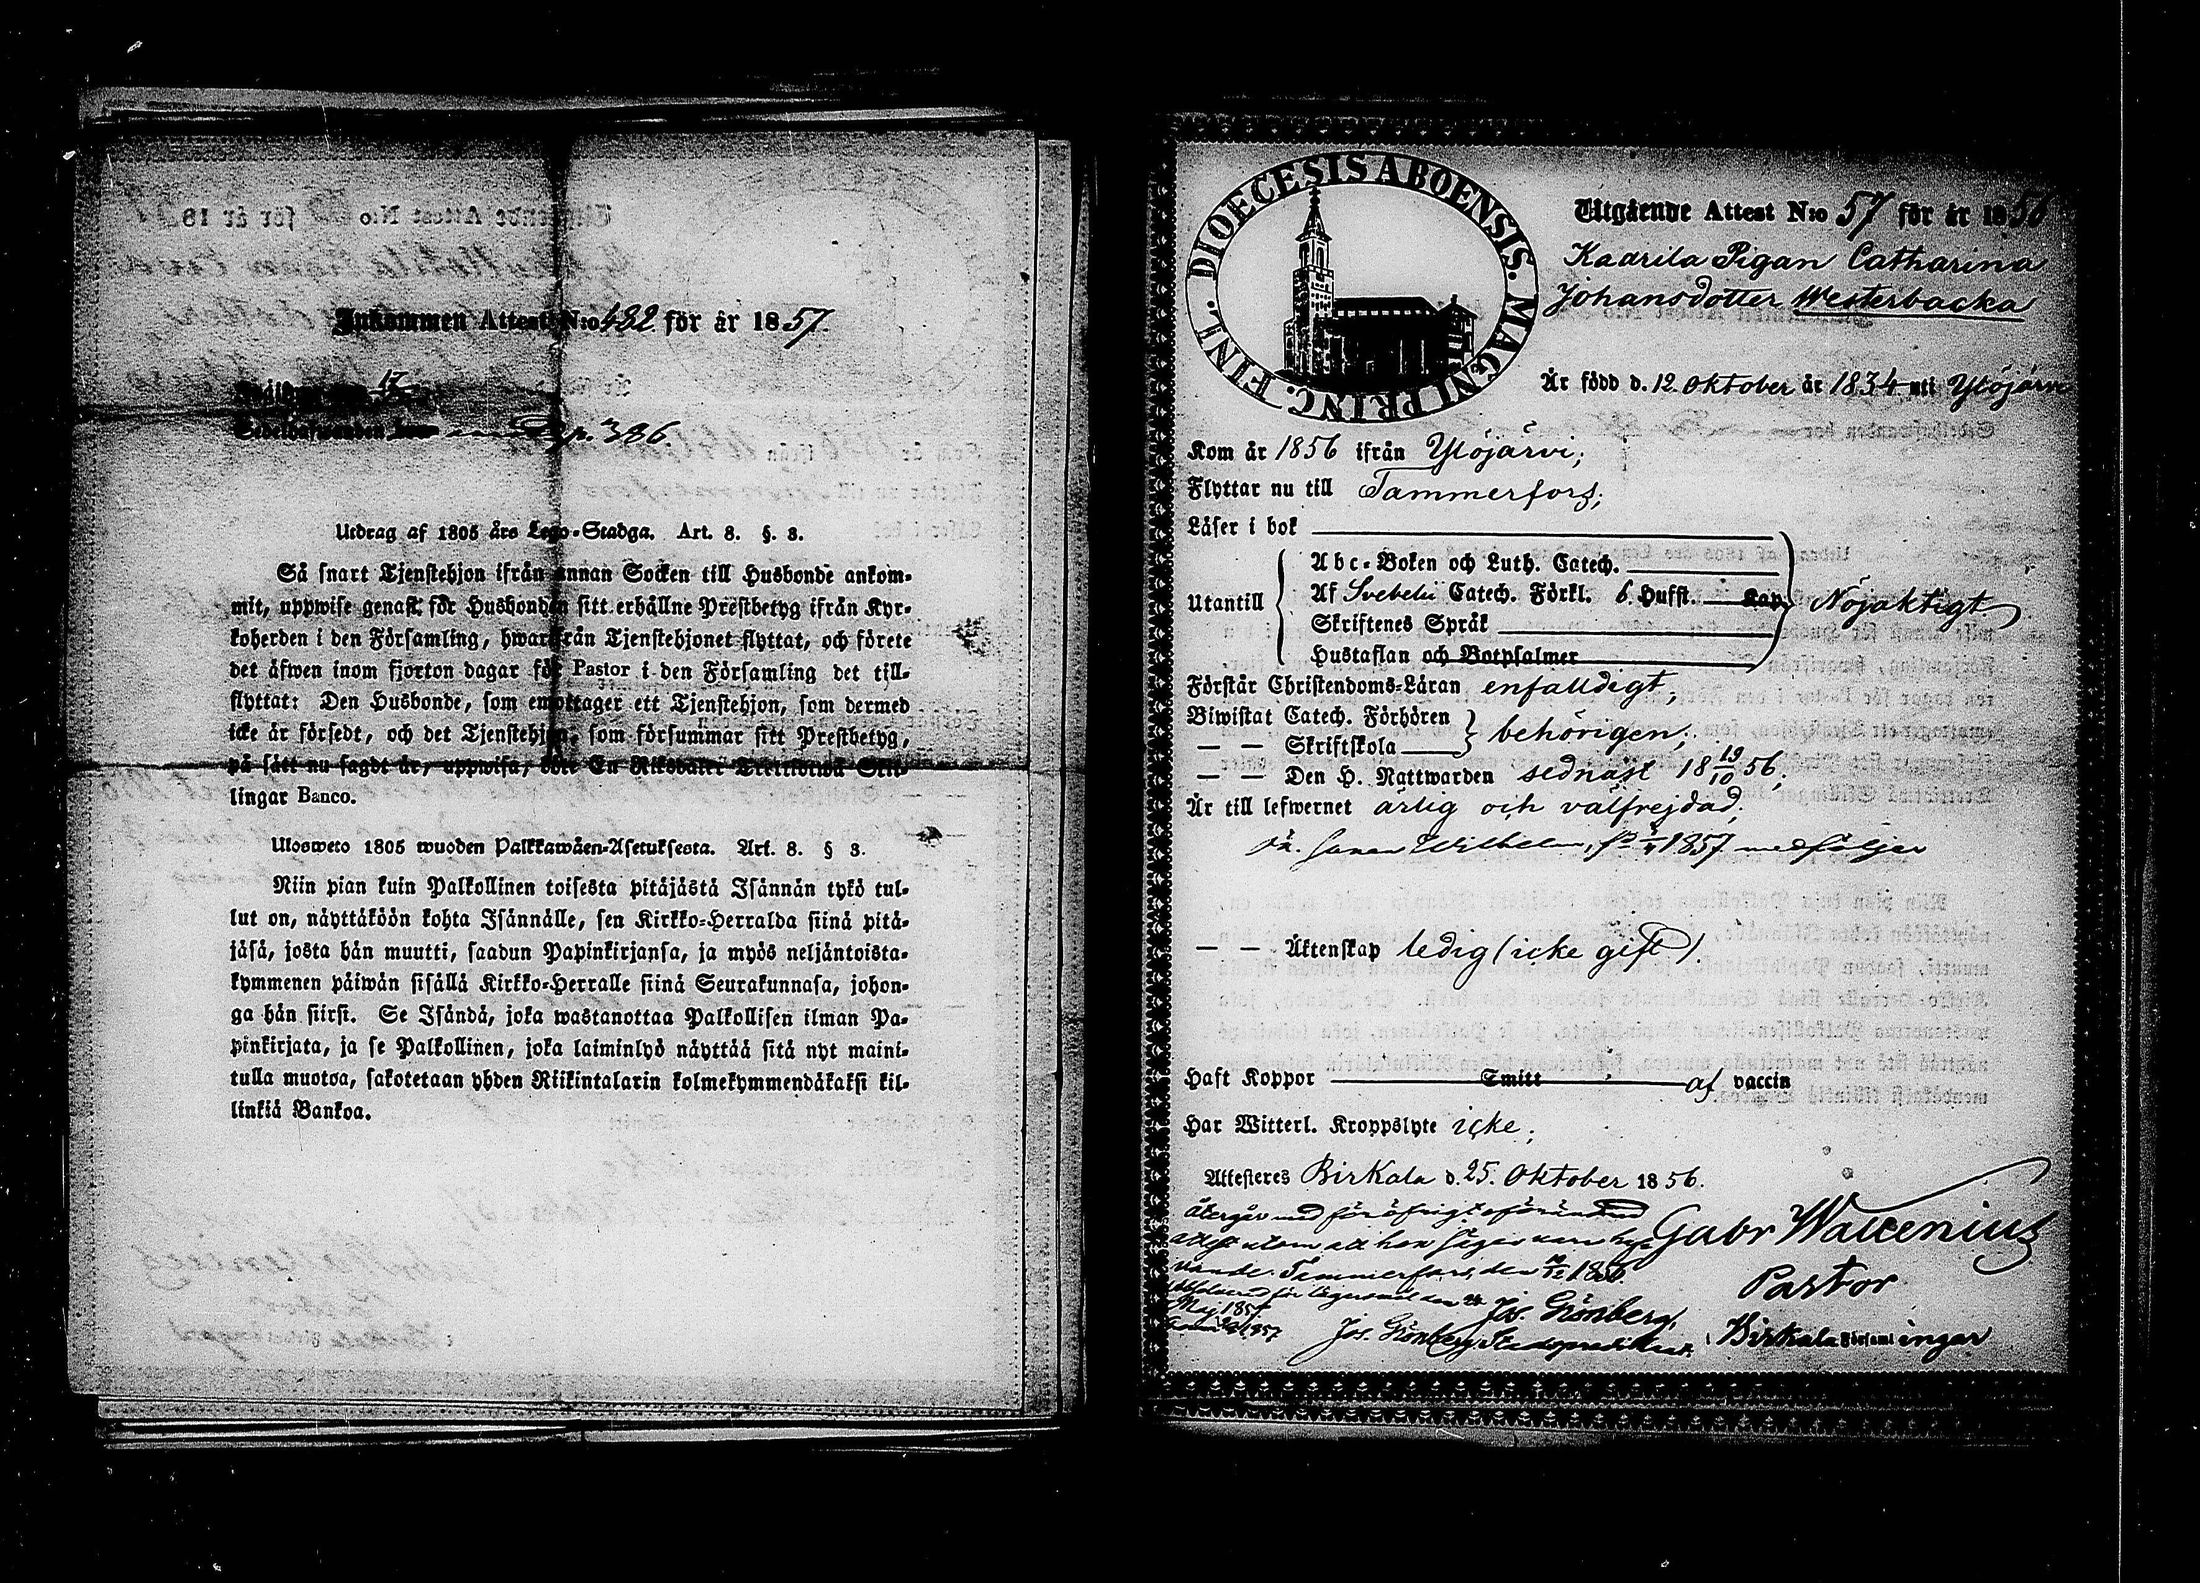 Inkommen Attest N:o 482 för år 1857.
17
p. 386.
Utdrag af 1805 års Lego-Stadga. Art. 8. §. 8.
Så snart Tjenstehjon ifrån annan Socken till Husbonde ankom-
mit, uppwise genast för Husbonden sitt erhållne Prestbetyg ifrån Kyr-
koherden i den Församling, hwarifrån Tjenstehjonet flyttat, och förete
det äfwen inom fjorton dagar för Pastor i den Församling det till-
flyttat: Den Husbonde, som emottager ett Tjenstehjon, som dermed
icke är försedt, och det Tjenstehjon, som försummar sitt Prestbetyg,
på sätt nu sagdt är, uppwisa, böte En Riksdaler Trettiotwå Skil-
lingar Banco.
Ulosweto 1805 wuoden Palkkawäen-Asetuksesta. Art. 8. § 8.
Niin pian kuin Palkollinen toisesta pitäjästä Isännän tykö tul-
lut on, näyttäköön kohta Isännälle, sen Kirkko-Herralda siinä pitä-
jäsä, josta hän muutti, saadun Papinkirjansa, ja myös neljäntoista-
kymmenen päiwän sisällä Kirkko-Herralle siinä Seurakunnasa, johon-
ga hän siirsi. Se Isändä, joka wastanottaa Palkollisen ilman Pa-
pinkirjata, ja se Palkollinen, joka laiminlyö näyttää sitä nyt maini-
tulla muotoa, sakotetaan yhden Riikintalarin kolmekymmendäkaksi kil-
linkiä Bankoa.
DIOECESIS ABOENSIS. MAGNI PRINC. FINL.
Utgående Attest N:o 57 för år 1856
Kaarila Pigan Catharina
Johansdotter Westerbacka
Är född d. 12 Oktober år 1834 uti Ylöjärvi
Kom år 1856 ifrån Ylöjärvi;
Flyttar nu till Tammerfors;
Läser i bok
Utantill
Abc-Boken och Luth. Catech.
Af Svebelii Catech. Förkl. 6. Hufst. Kap.
Skriftenes Språk
Hustaflan och Botpsalmer
Nöjaktigt
Förstår Christendoms-Läran enfalldigt;
Biwistat Catech. Förhören
— — Skriftskola
behörigen;
— — Den H. Nattwarden sednast 18 19/10 56;
Är till lefwernet ärlig och välfrejdad;
Wilhelm, 1857 medföljer
— — Äktenskap ledig (icke gift).
Haft Koppor Smitt af vaccin
Har Witterl. Kroppslyte icke;
Attesteres Birkala d. 25. Oktober 1856.
Gabr Wallenius
Pastor
i Birkala Församlingar
Återgår med
attest utom att hon säger vara
vande. Tammerfors den 1856.
Jos. Grönberg,
Maj 1857
Jos. Grönberg, Stadspredikant.